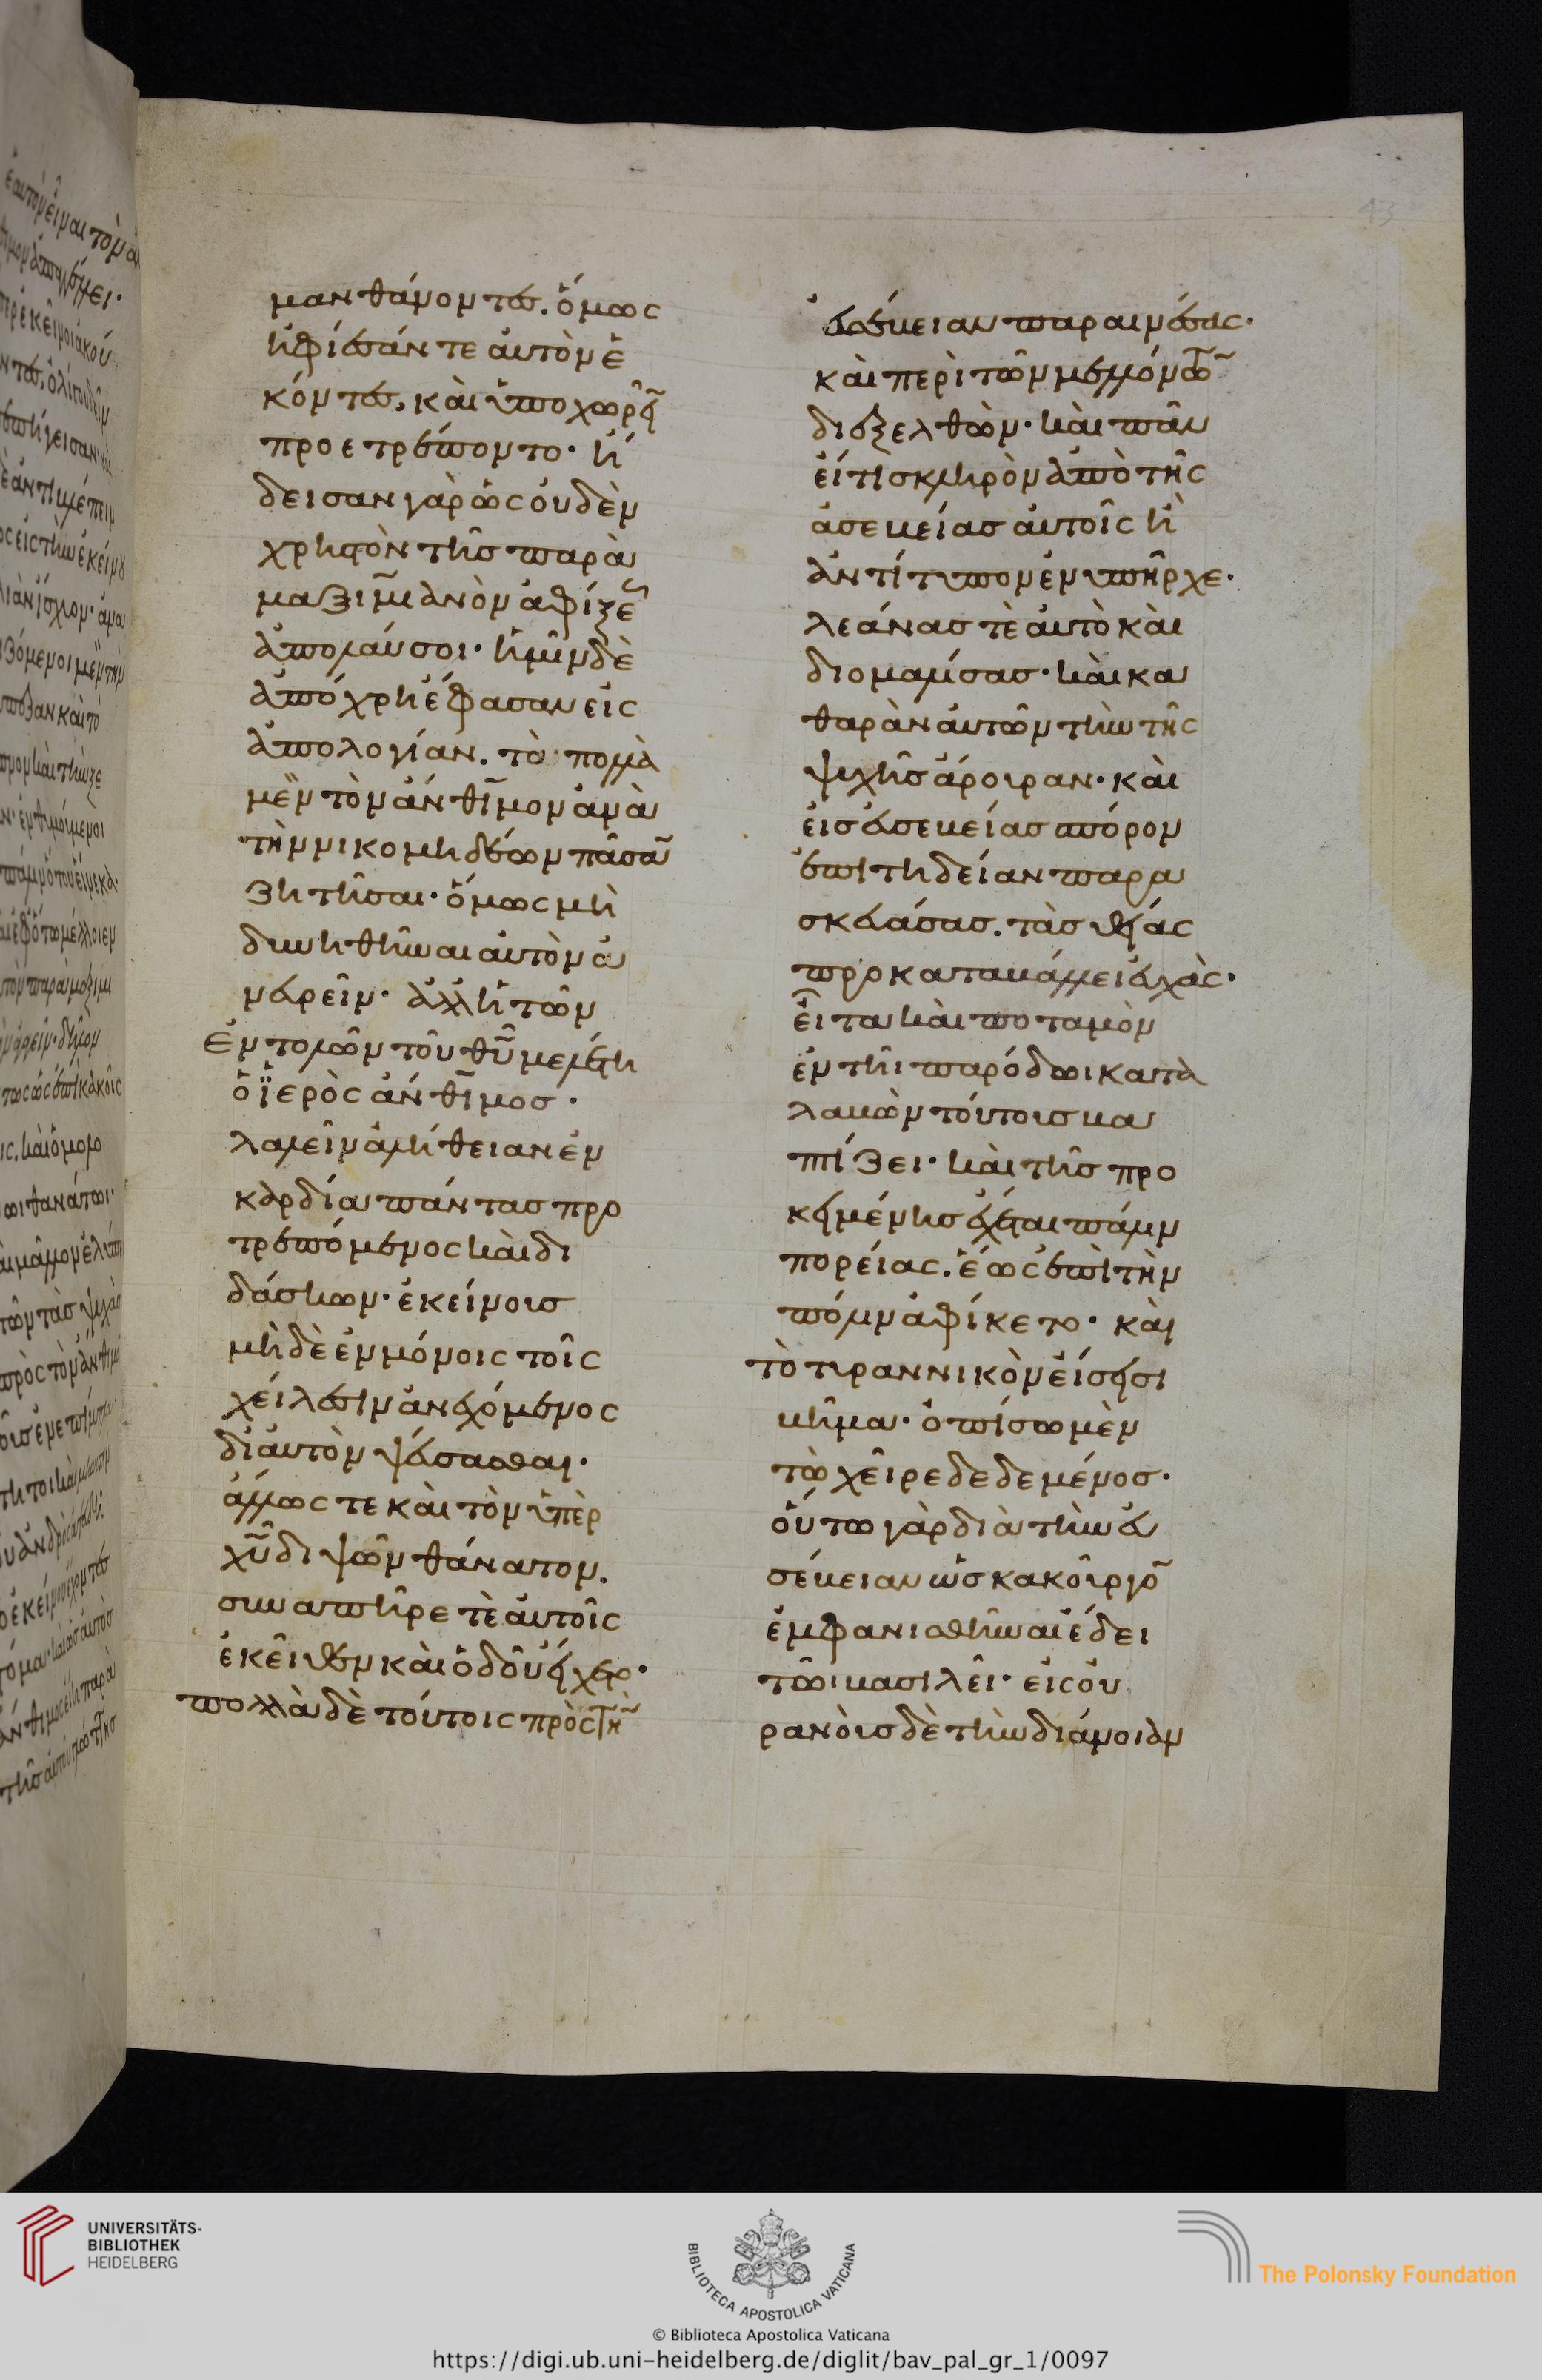 43
μανθάνοντες. ὅμως
ἠφίεσάν τε αὐτὸν ἑ
κόντες, καὶ ὑποχωρεῖν
προετρέποντο· ἤ
δεισαν γὰρ ὡς οὐδὲν
χρηστὸν τῆς παρὰ
μαξιμιανὸν ἀφίξεως
ἀπολαύσοι· ἡμῖν δὲ
ἀπόχρη ἔφασαν εἰς
ἀπολογίαν. τὸ πολλὰ
μὲν τὸν ἄνθιμον ἀνὰ
τὴν νικομηδέων πᾶσαν
ζητῆσαι· ὅμως μὴ
δυνηθῆναι αὐτὸν ἀ
νευρεῖν· ἀλλ' ἡ τῶν
Ἐντολῶν τοῦ θῦ μελέτη
ὁ ϊερὸς ἄνθιμος·
λαλεῖν ἀλήθειαν ἐν
καρδία πάντας προ
τρεπόμενος καὶ δι
δάσκων· ἐκείνοις
μὴδὲ ἐν μόνοις τοῖς
χείλεσιν ἀνειχόμενος
δι' αὐτὸν ψεύσασθαι·
ἄλλως τε καὶ τὸν ὑπὲρ
χῦ διψῶν θάνατον.
συναπῆρε τὲ αὐτοῖς
ἐκεῖθεν καὶ ὁδοῦ εἴχετο·
πολλὰ δὲ τούτοις πρὸς τὴν
εὐσέβειαν παραινέσας·
καὶ περὶ τῶν μελλόντων
διεξελθὼν· καὶ πᾶν
εἴ τι σκληρὸν ἀπὸ τῆς
ἀσεβείας αὐτοῖς ἢ
ἀντίτυπον ἐνυπῆρχε·
λεάνας τὲ αὐτὸ καὶ
διομαλίσας· καὶ κα
θαρὰν αὐτῶν τὴν τῆς
ψυχῆς ἄρουραν· καὶ
εἰς εὐσεβείας σπόρον
ἐπιτηδείαν παρα
σκευάσας. τὰς θείας
προκαταβάλλει εὐχὰς·
εἶτα καὶ ποταμὸν
ἐν τῆι παρόδωι κατα
λαβὼν τούτους βα
πτίζει· καὶ τῆς προ
κειμένης ἔχεται πάλιν
πορείας. ἕως ἐπὶ τὴν
πόλιν ἀφίκετο· καὶ
τὸ τυραννικὸν εἴσεισι
βῆμα· ὀπίσω μὲν
τὼ χεῖρε δεδεμένος·
οὕτω γὰρ διὰ τὴν εὐ
σέβειαν ὡς κακοῦργον
ἐμφανισθῆναι ἔδει
τῶι βασιλεῖ· εἰς οὐ
ρανοὺς δὲ τὴν διάνοιαν
UNIVERSITÄTS-
BIBLIOTHEK
HEIDELBERG
BIBLIOTECA APOSTOLICA VATICANA
The Polonsky Foundation
© Biblioteca Apostolica Vaticana
https://digi.ub.uni-heidelberg.de/diglit/bav_pal_gr_1/0097